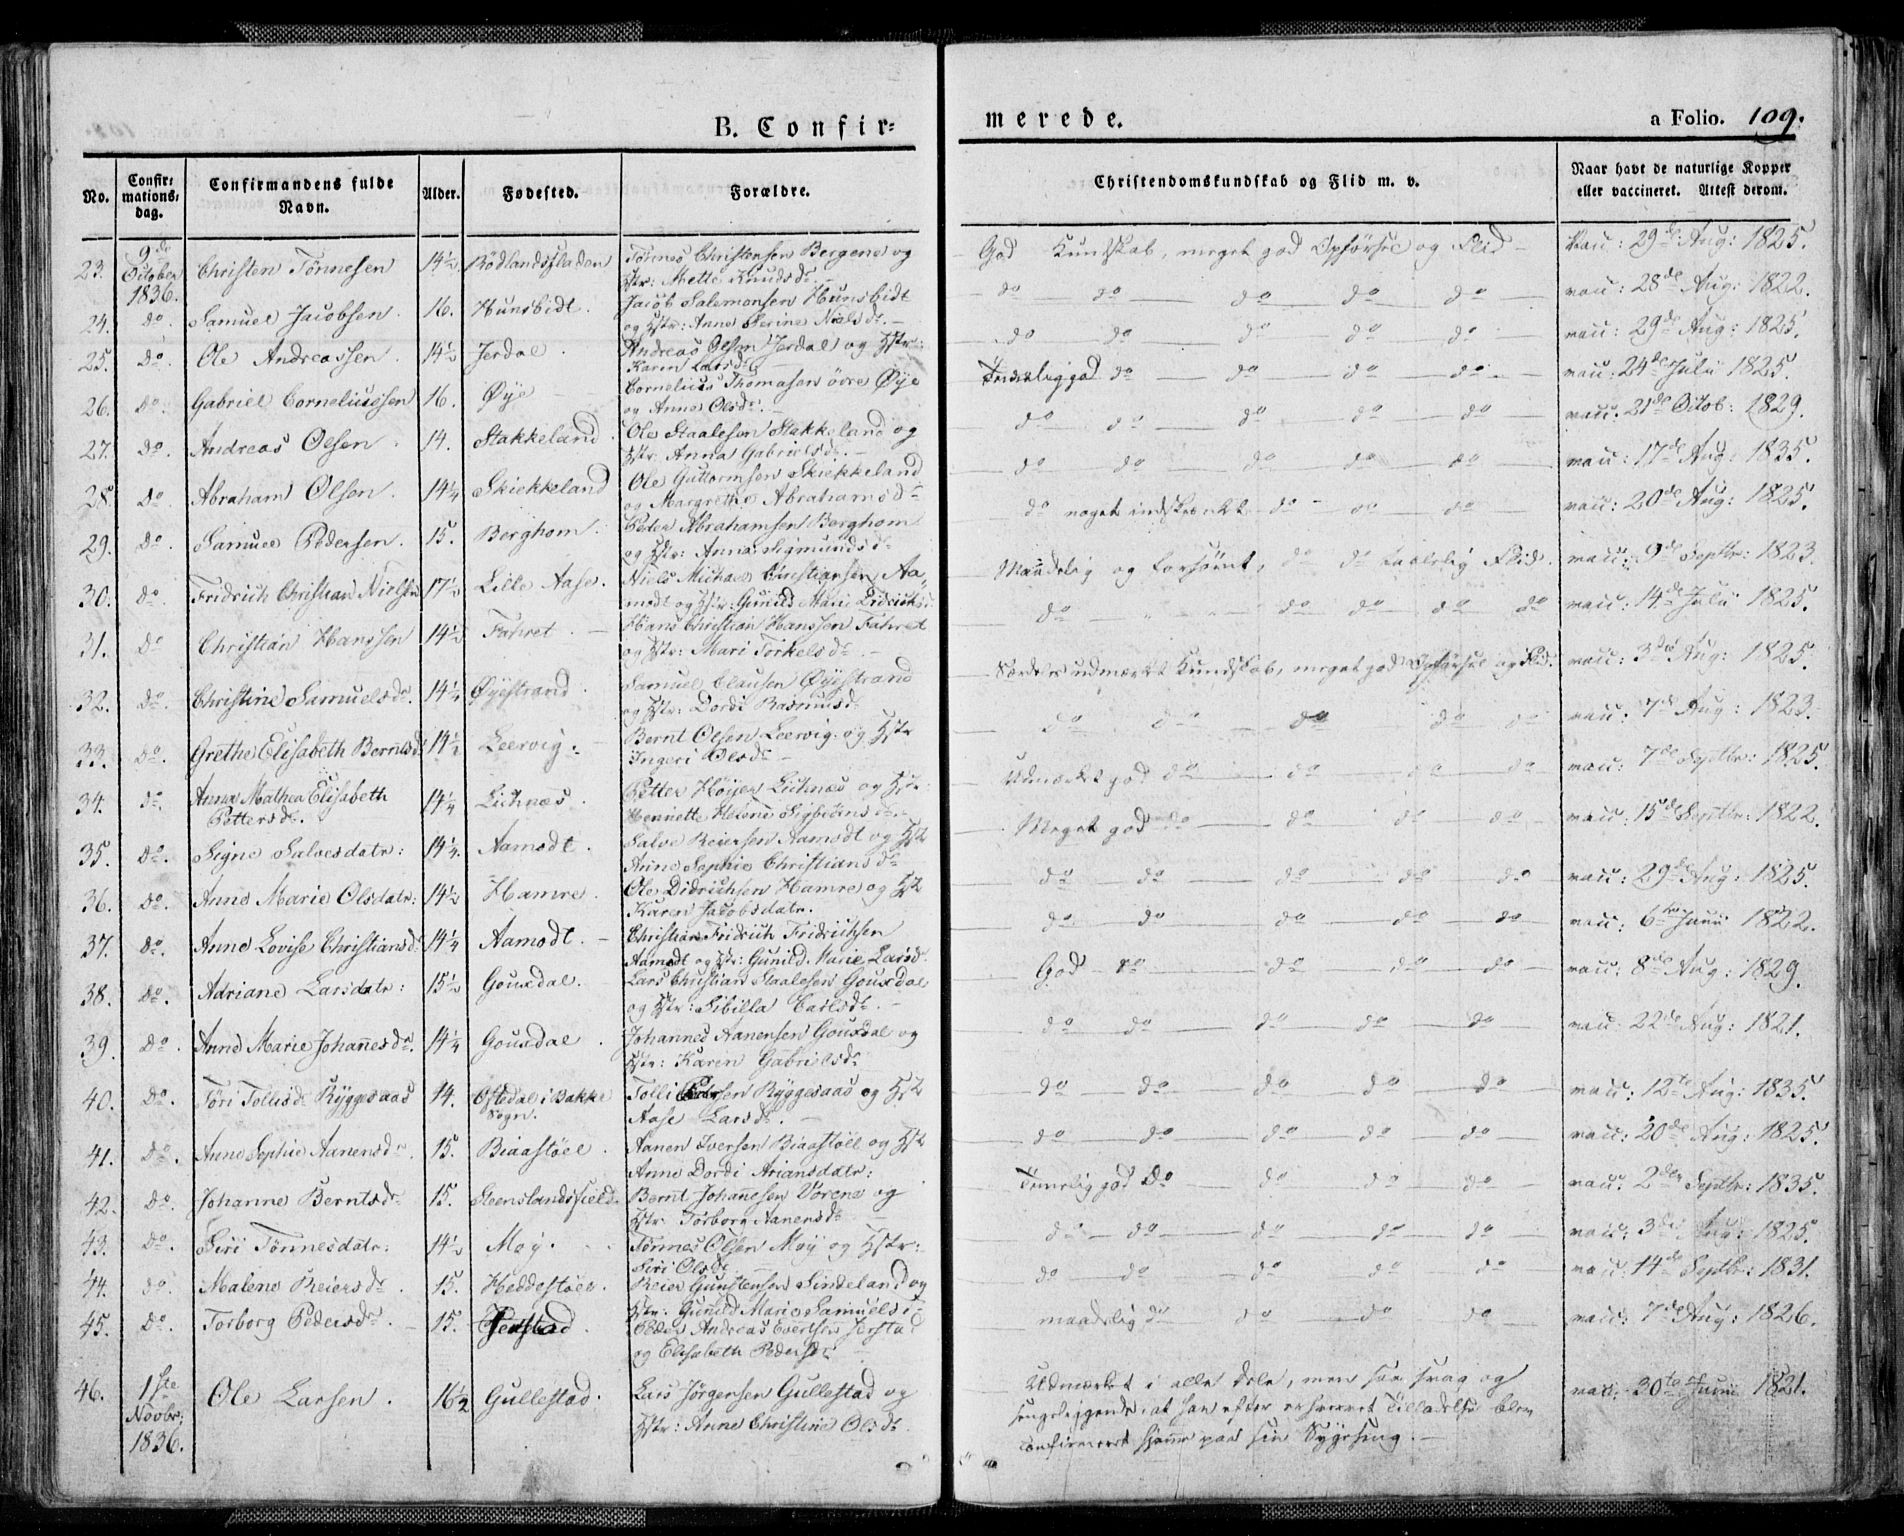 B. Confir=
merede.
a Folio. 109.
No.
Confir=
mations=
dag.
Confirmandens fulde
Navn.
Alder.
Fødested.
Forældre.
Christendomskundskab og Flid m. v.
Naar havt de naturlige Kopper
eller vaccineret. Attest derom.
23. 9de October 1836. Christen Tönnesen 14½ Rödlandsfladen Tönnes Christensen Bergene og
Hstr: Mette Knudsdr. God Kundskab, meget god Opförsel og Flid vacc: 29de Aug: 1825.
24. Do. Samuel Jacobsen. 16. Hunsbidt. Jacob Salemonsen Hunsbidt
og Hstr: Anne Serine Nielsdr. do do do do do vacc: 28de Aug: 1822.
25. Do. Ole Andreassen. 14½ Jerdal. Andreas Olsen Jerdal og Hstr:
Karen Larsdr. do do do do do vacc: 29de Aug: 1825.
26. Do. Gabriel Corneliussen 16. Øye Cornelius Thomasen övre Øye
og Anne Olsdr. Temelig god do do do do vacc: 24de Julii 1825.
27. Do. Andreas Olsen. 14. Stakkeland. Ole Staalesen Stakkeland og
Hstr: Anna Gabrielsdr. do do do do do vacc: 21de Octob: 1829.
28. Do. Abraham Olsen. 14¼ Skiekkeland Ole Guttormsen Skiekkeland
og Margrethe Abrahamsdr. do do do do do vacc: 17de Aug: 1835.
29. Do. Samuel Pedersen. 15. Berghom. Peder Abrahamsen Berghom
og Hstr: Anna Sigmundsdr. do noget indskrænket do do do vacc: 20de Aug: 1825.
30. Do. Fridrich Christian Nielsen 17½ Lille Aase. Niels Michael Christiansen Aa=
modt og Hstr: Gunild Marie Didrichsd. Maadelig og forsömt, do do taalelig Flid. vacc: 9de Septbr: 1823.
31. Do Christian Hanssen 14½ Fahret. Hans Christian Hanssen Fahret
og Hstr: Mari Torkelsdr. do do do do do vacc: 14de Julii 1825.
32. Do. Christine Samuelsdr. 14¼ Øyestrand. Samuel Clausen Øyestrand
og Hstr: Dordi Rasmusdr. Særdeles udmærket Kundskab, meget god Opförsel og Flid. vacc: 3de Aug: 1825.
33. Do. Grethe Elisabeth Berntsd. 14½ Leervig. Bernt Olsen Leervig og Hstr
Ingeri Olsdr. do do do do do vacc: 7de Aug: 1823.
34. Do. Anna Mathea Elisabeth
Pettersdr. 14¼ Lichnæs. Petter Höyer Lichnæs og Hstr:
Hennette Helene Sigbiörnsdr. Udmærket god do do do do vacc: 7de Septbr: 1825.
35. Do. Signe Salvesdatr: 14¼. Aamodt. Salve Reiersen Aamodt og Hstr
Anne Sophie Christiansdr. Meget god do do do do vacc: 15de Septbr: 1822.
36. Do. Anne Marie Olsdatr: 14½ Hamre. Ole Didrichsen Hamre og Hstr
Karen Jacobsdatr. do do do do do vacc: 29de Aug: 1825.
37. Do. Anne Lovise Christiansd. 14¼ Aamodt. Christian Fridrich Fridrichsen
Aamodt og Hstr: Gunild Marie Larsd. do do do do do vacc: 6te Junii 1822.
38. Do. Adriane Larsdatr: 15½ Gousdal. Lars Christian Staalesen Gousdal
og Hstr: Sibilla Carlsdr. God do do do do vacc: 8de Aug: 1829.
39. Do. Anne Marie Johannesdr. 14¼ Gousdal. Johannes Aanensen Gousdal og
Hstr: Karen Gabrielsdr. do do do do do vacc: 22de Aug: 1821.
40. Do. Töri Tollisdr Ryggesaas 14. Ofstedal i Bakke
Sogn. Tolli Pedersen Ryggesaas og Hstr
Aase Larsdr. do do do do do vacc: 12te Aug: 1835.
41. Do. Anne Sophie Aanensdr. 15. Biaastöel. Aanen Iversen Biaastöel og Hstr
Anne Dordi Ariansdatr: do do do do do vacc: 20de Aug: 1825.
42. Do. Johanne Berntsdr. 15. Steenslandsfield. Bernt Johannesen Vorene og
Hstr. Torborg Aanensdr. Temelig god do do do do vacc: 2den Septbr: 1835.
43. Do. Siri Tönnesdatr: 14½ Moy. Tönnes Olsen Moy og Hstr:
Siri Olsdr. do do do do do vacc: 3de Aug: 1825.
44. Do Malene Reiersdr. 15. Heddestöel. Reier Gunstensen Sindeland og
Hstr: Gunild Marie Samuelsd. do do do do do vacc: 14de Septbr: 1831.
45. Do. Torborg Pedersdr. 15. Jerstad. Peder Andreas Evertsen Jerstad
og Elisabeth Pedersdr. maadelig do do do do vacc: 7de Aug: 1826.
46. 1ste Novbr: 1836. Ole Larsen. 16½ Gullestad. Lars Jörgensen Gullestad og
Hstr: Anne Christine Olsdr. Udmærket i alle Dele, men saa svag og
sengeliggende, at han efter erhvervet Tilladelse blev
confirmeret hjemme paa sin Sygeseng. vacc: 30te Junii 1821.